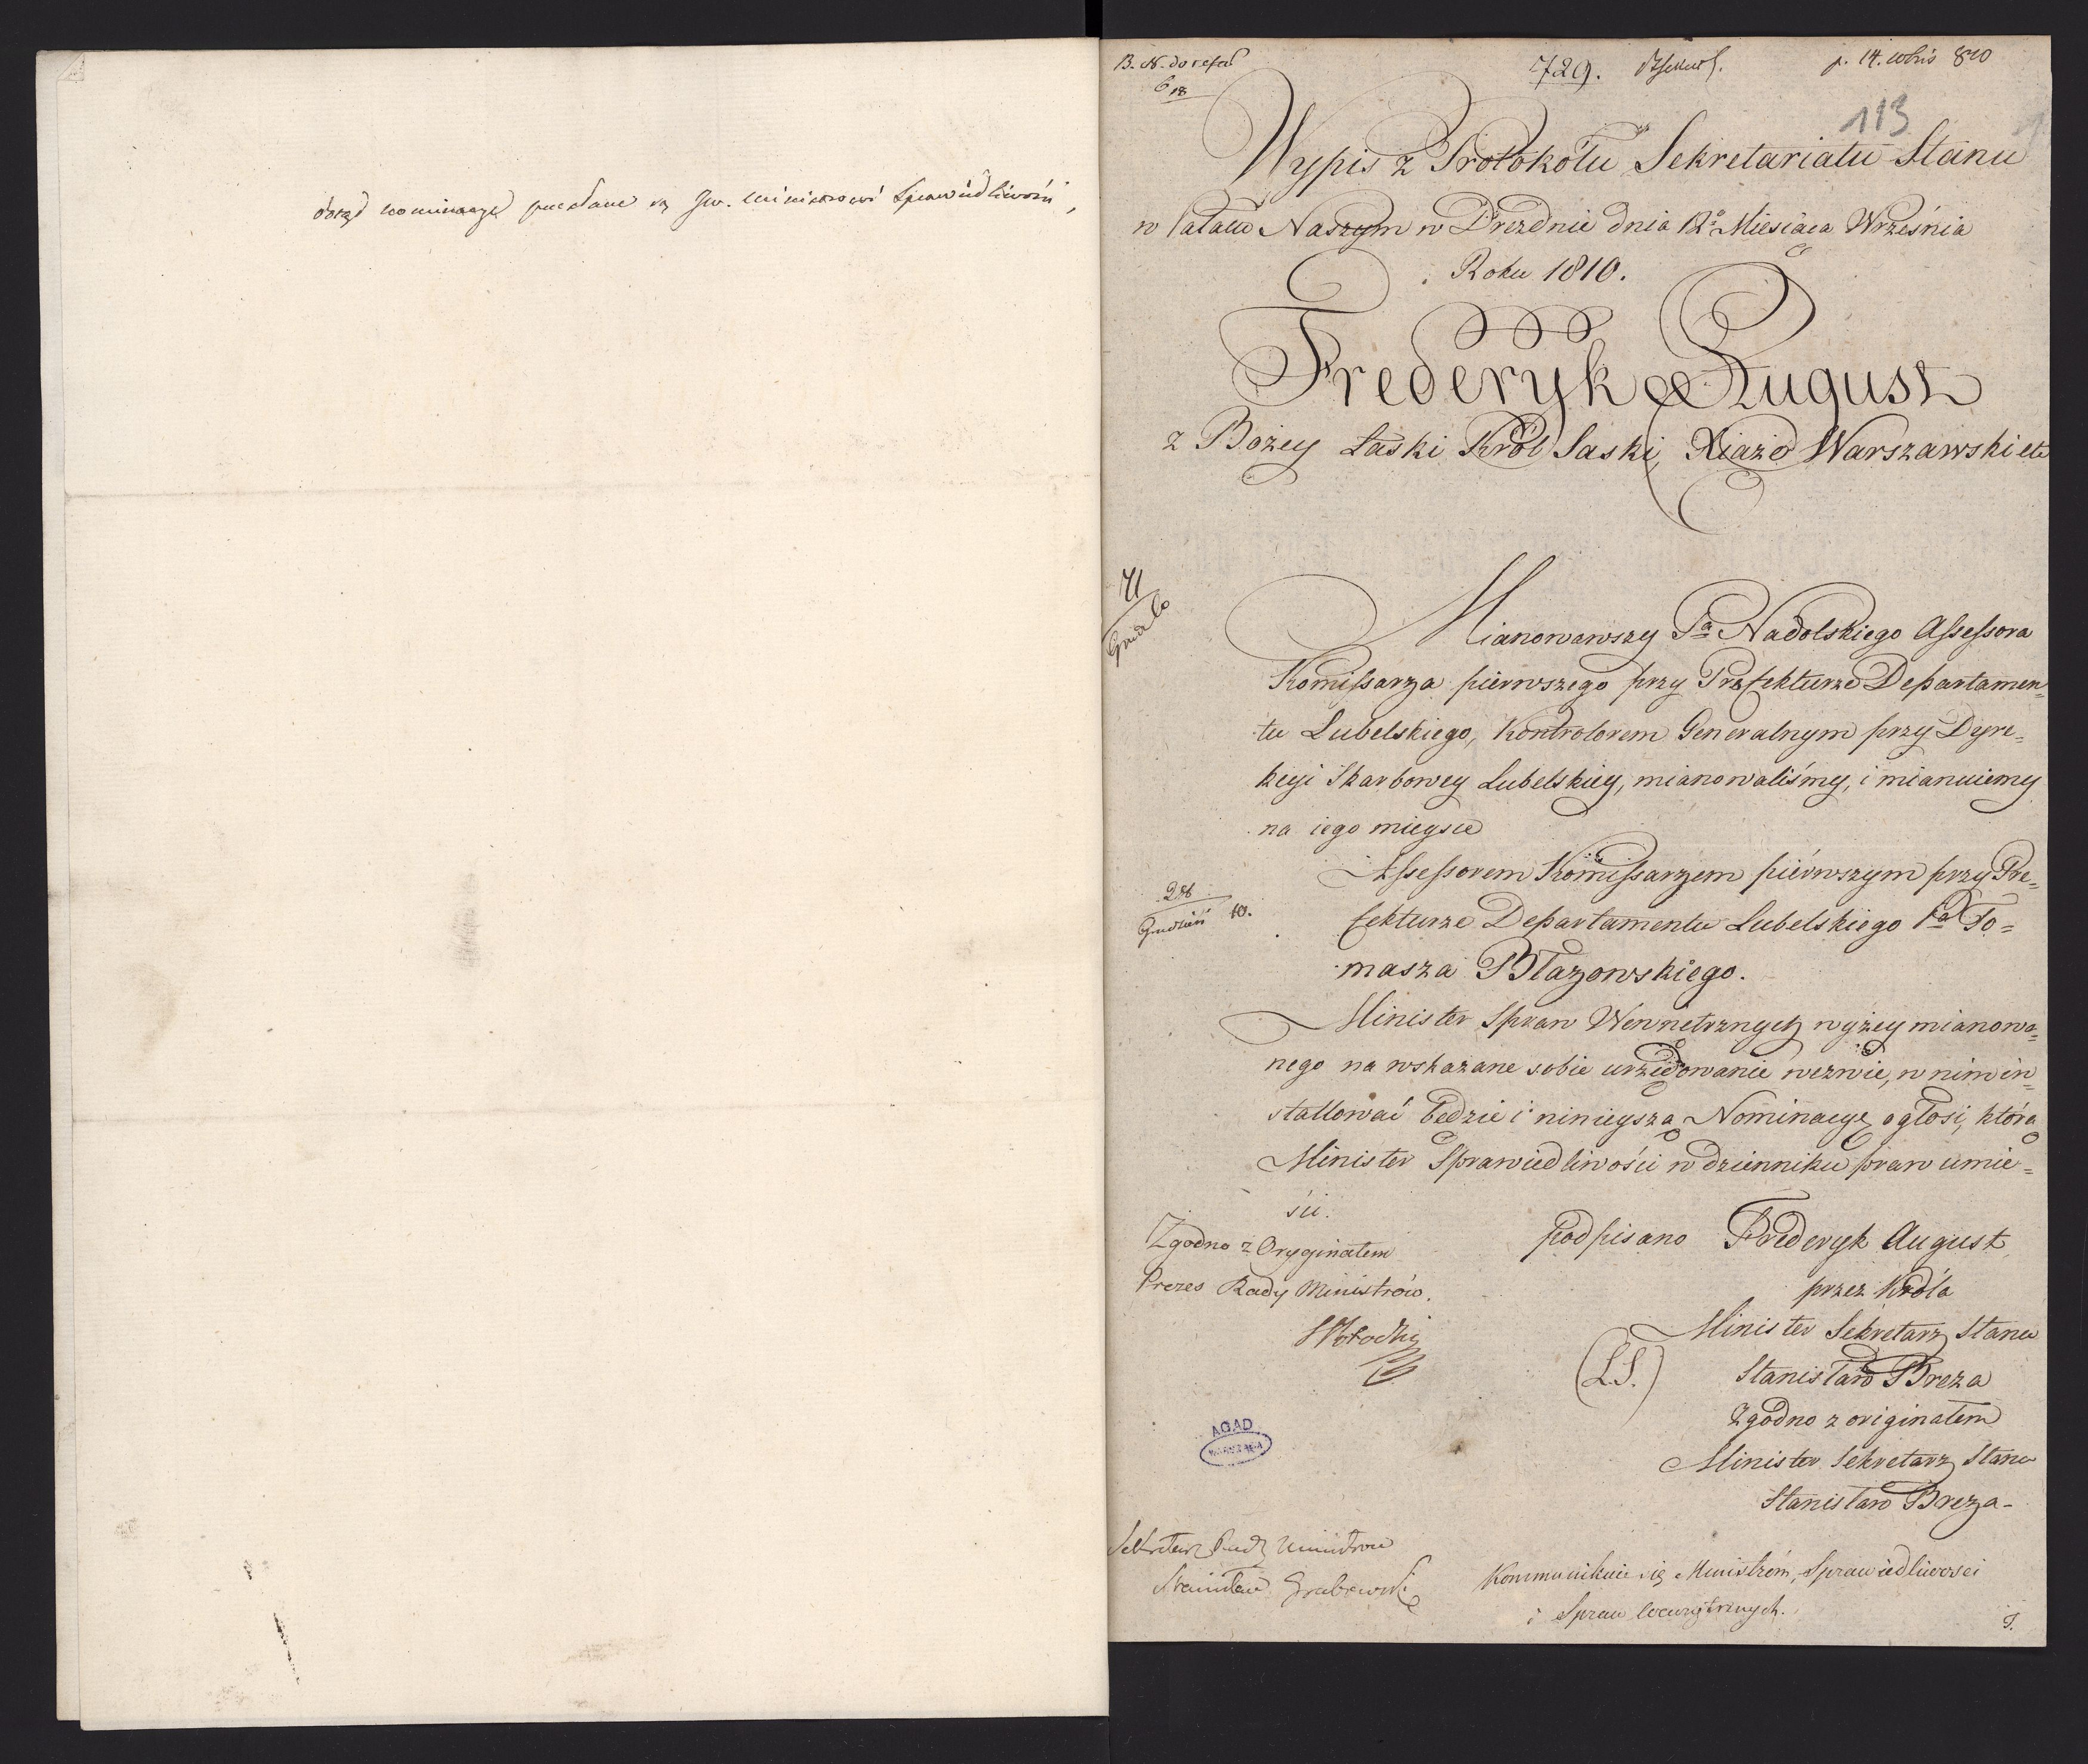 dotąd nominacye przesłane są JW. Ministrowi Sprawiedliwości,
729. p. 14. 810
113
Wypis z Protokołu Sekretariatu Stanu
w Pałacu Naszym w Dreznie dnia 12o Miesiąca Września
Roku 1810.
Frederyk August
z Bożey Łaski Król Saski, Xiąże Warszawski etc
Mianowawszy Pa Nadolskiego Assessora
Komissarza pierwszego przy Prefekturze Departamen=
tu Lubelskiego, Kontrolorem Generalnym przy Dyre=
kcyi Skarbowey Lubelskiey, mianowaliśmy, i mianuiemy
na iego mieysce
28
Grudnia 10.
Assessorem Komissarzem pierwszym przy Pre=
fekturze Departamentu Lubelskiego Pa To=
masza Błazowskiego.
Minister Spraw Wewnetrznych wyżey mianowa=
nego na wskazane sobie urzędowanie wezwie, w nim in=
stallować będzie i ninieyszą Nominacyę ogłosi, którą
Minister Sprawiedliwości w dzienniku praw umie=
ści.
Zgodno z Oryginałem
Prezes Rady Ministrów.
podpisano Frederyk August
przez Króla
Minister Sekretarz Stanu
(L.S.) Stanisław Breza
Zgodno z originałem
Minister Sekretarz Stanu
Stanisław Breza
AGAD
WARSZAWA
Sekretarz Rady Ministrow
Stanisław Grabowski
Kommunikuie się Ministrom, Sprawiedliwosci
i Spraw Wewnętrznych.